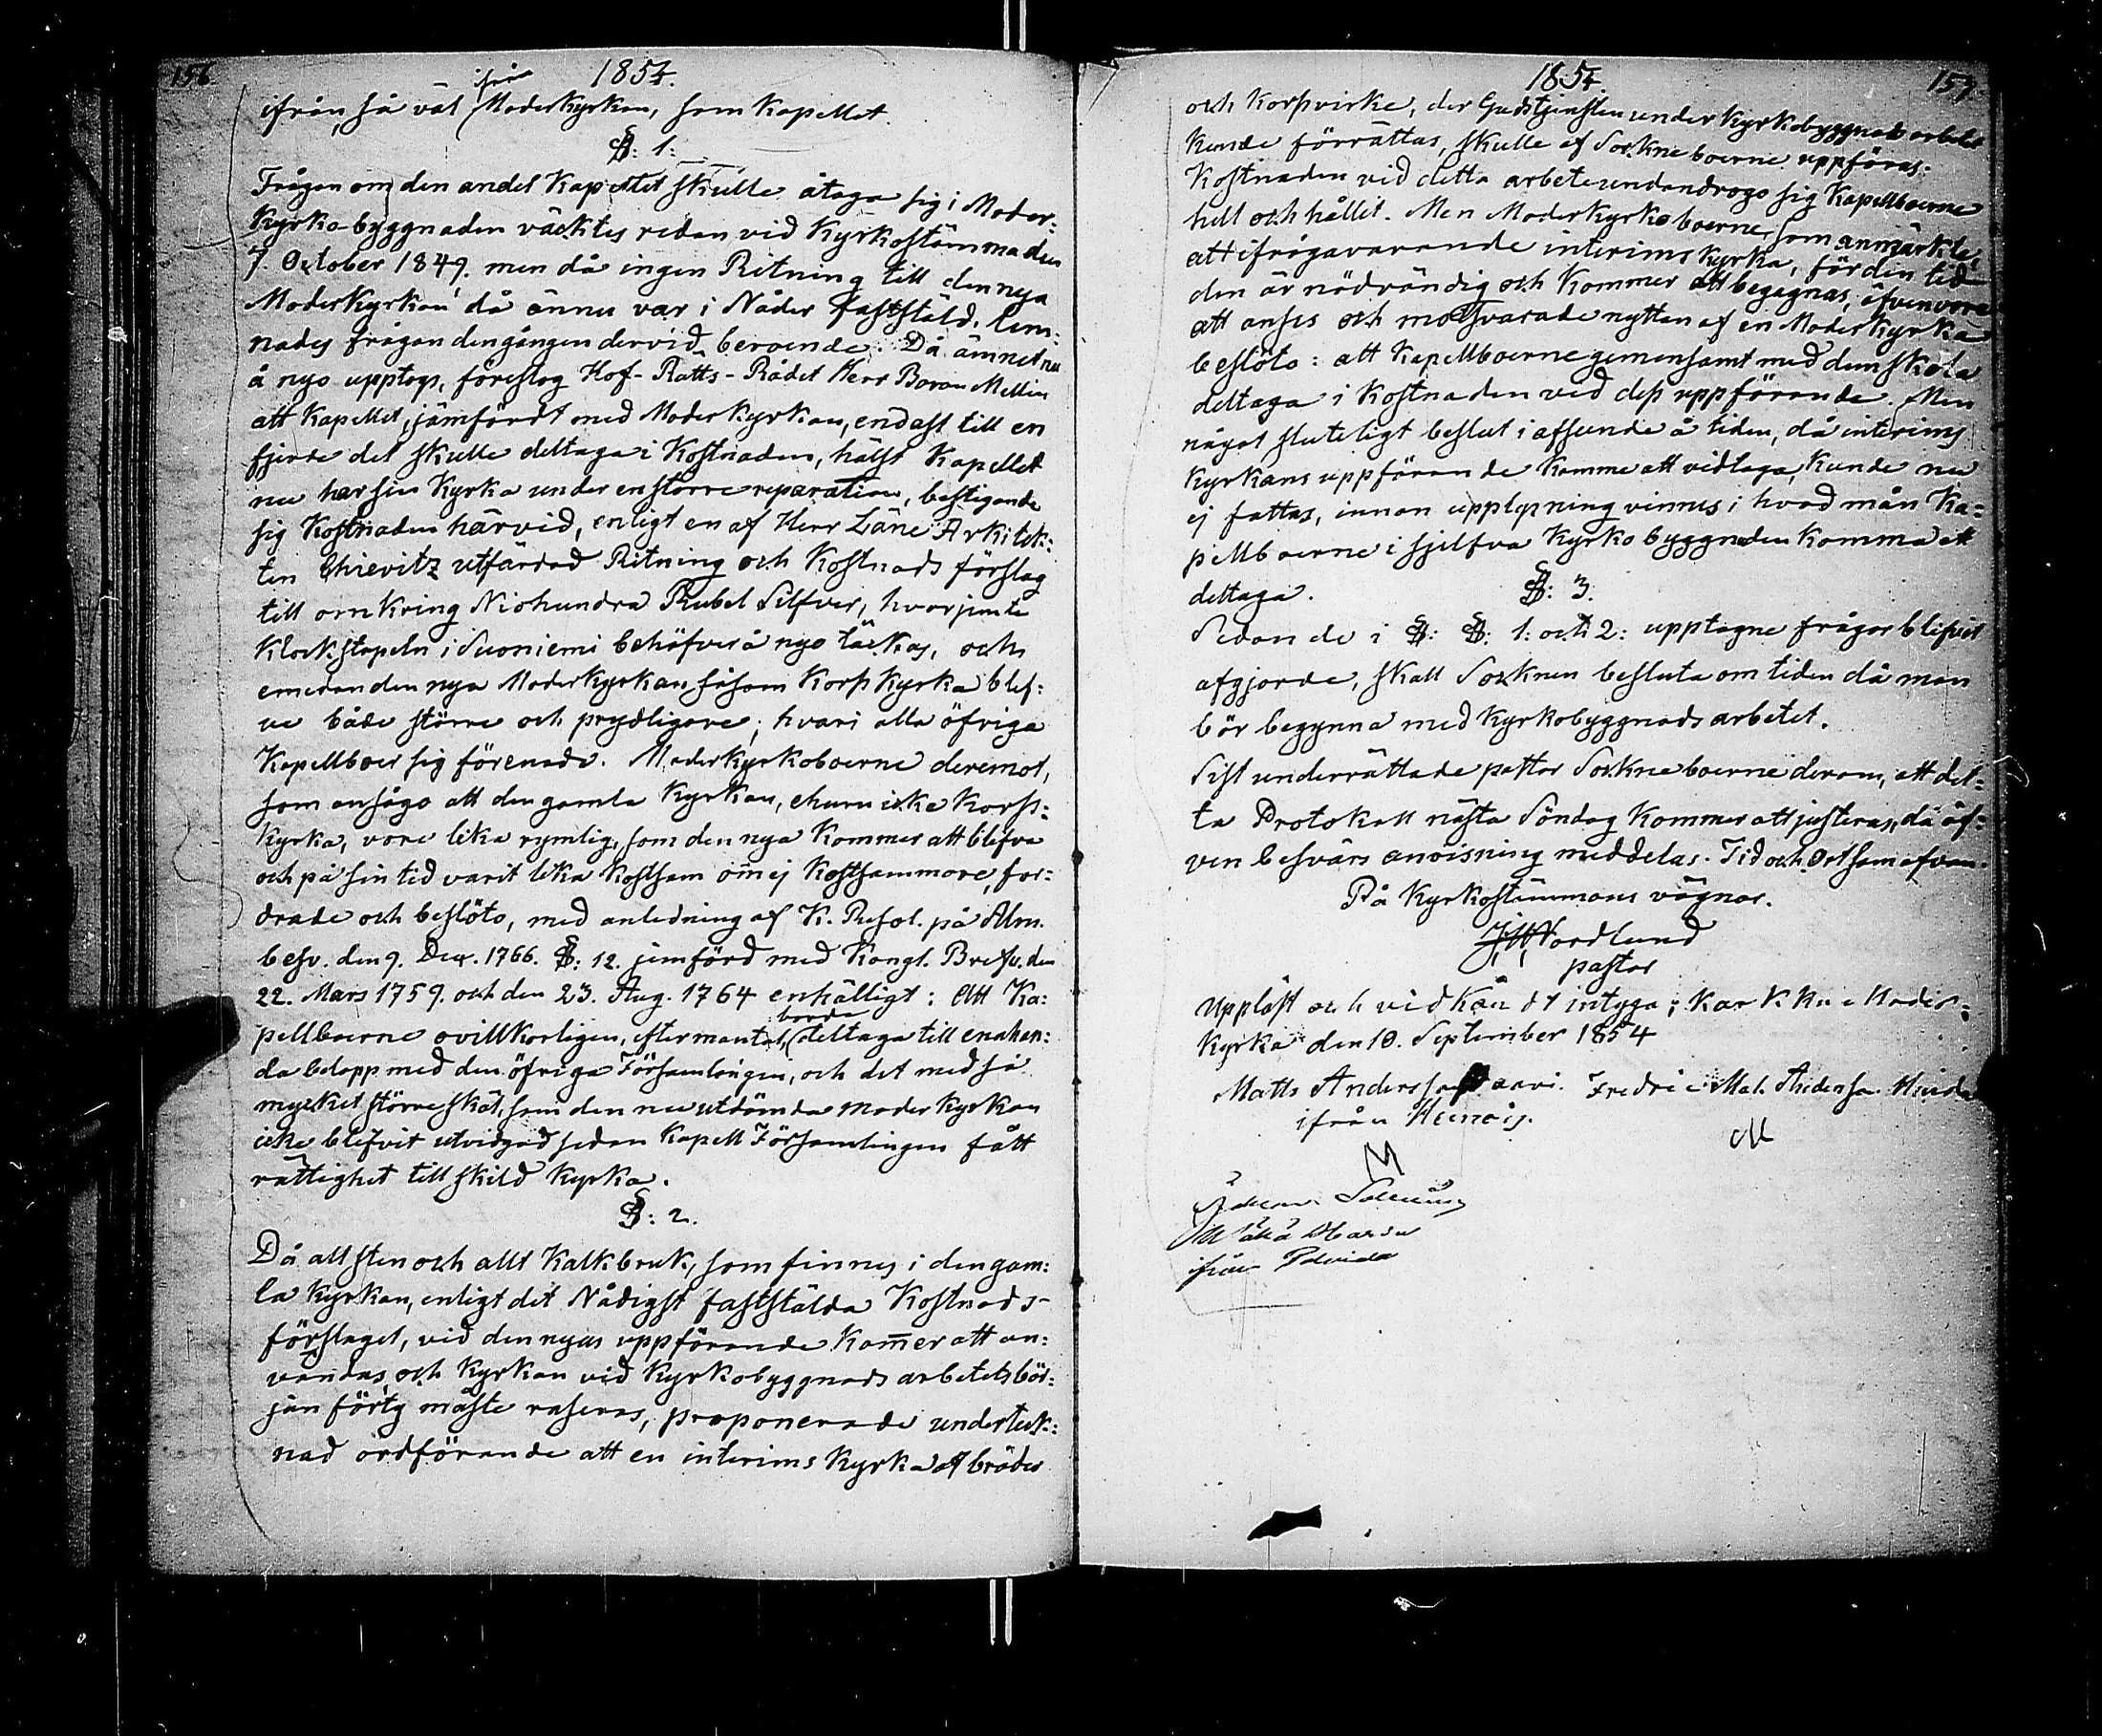 156.
1854.
ifrån
ifrån, så väl Moderkyrkan, som Kapellet.
§: 1:
Frågan om den andel Kapellet skulle åtaga sig i Moder-
Kyrko-byggnaden väcktes redan vid Kyrkostämman den
7. October 1849. men då ingen Ritning till den nya
Moderkyrkan då ännu var i Nåder fastställd, lem:
nades frågan den gången dervid beroende. Då ämnet nu
å nyo upptogs, föreslog Hof-Rätts-Rådet Herr Baron Mellin
att Kapellet, jämfördt med Moderkyrkan, endast till en
fjerde del skulle deltaga i Kostnaden, hälst Kapellet
nu har sin Kyrka under en större reparation, bestigande
sig Kostnaden härvid, enligt en af Herr Läne Arkitek:
ten Chievitz utfärdad Ritning och Kostnads förslag
till omkring Niohundra Rubel Silfver, hvarjemte
Klockstapeln i Suoniemi behöfver å nyo täckas, och
emedan den nya Moderkyrkan såsom Korskyrka blef:
ve både större och prydligare; hvari alla öfriga
Kapellboer sig förenade. Moderkyrkoboerne deremot,
som ansågo att den gamla Kyrkan, churu icke Korss:
kyrka, vore lika rymlig, som den nya Kommer att blifva
och på sin tid varit lika Kostsam om ej Kostsammare, for:
drade och beslöto, med anledning af K. Resol. på Alm.
besv. den 9. Dec. 1766. §: 12. jemförd med Kongl. Brefv. den
22. Mars 1759. och den 23. Aug. 1764 enhälligt: Att Ka:
borde
pellboerne ovillkorligen, efter mantal, deltaga till enahan:
da belopp med den öfriga Församlingen, och det med så
mycket större skäl, som den nu utdömda moderkyrkan
icke blifvit utvidgad sedan Kapell Församlingen fått
rättighet till skild Kyrka.
§: 2.
Då all sten och allt Kalkbruk, som finnes i den gam:
la Kyrkan, enligt det Nådigst fastställda Kostnads-
förslaget, vid den nyas uppförande Kommer att an:
vändas och Kyrkan vid Kyrkobyggnads arbetets bör:
jan förty måste raseras, proponerade underteck:
nad ordförande att en interims Kyrka af bräder
1854.
157.
och Korsvirke, der Gudstjensten under Kyrkobyggnads arbetet
Kunde förrättas, skulle af Sockneboerne uppföras.
Kostnaden vid detta arbete undandrogo sig Kapellboerne
helt och hållet. Men Moderkyrkoboerne, som anmärkte,
att ifrågavarande interims Kyrka, för den tid
den är nödvändig och Kommer att begagnas, äfven vore
att anses och motsvarade nyttan af en Moderkyrka
beslöto: att Kapellboerne gemensamt med dem skola
deltaga i Kostnaden vid dess uppförande. Men
något sluteligt beslut i afseende å tiden, då interims
Kyrkans uppförande Komme att vidtaga, Kunde nu
ej fattas, innan upplysning vinnes i hvad mån Ka:
pellboerne i sjelfva Kyrko byggnaden Komma att
deltaga.
§: 3.
Sedan de i §: §: 1: och 2: upptagne frågor blifvit
afgjorde, skall Socknen besluta om tiden då man
bör begynna med Kyrkobyggnads arbetet.
Sist underrättade pastor Sockneboerne derom, att det:
ta Protokoll nästa Söndag Kommer att justeras, då äf:
ven besvärs anvisning meddelas. Tid och Ort som ofvan.
På Kyrkostämmans vägnar.
Nordlund
pastor
Uppläst och vidkändt intyga; Karkku Moder:
Kyrka den 10. September 1854
Matts Andersson Fredric Mat. Andersson
ifrån
M
M
Johan
ifrån